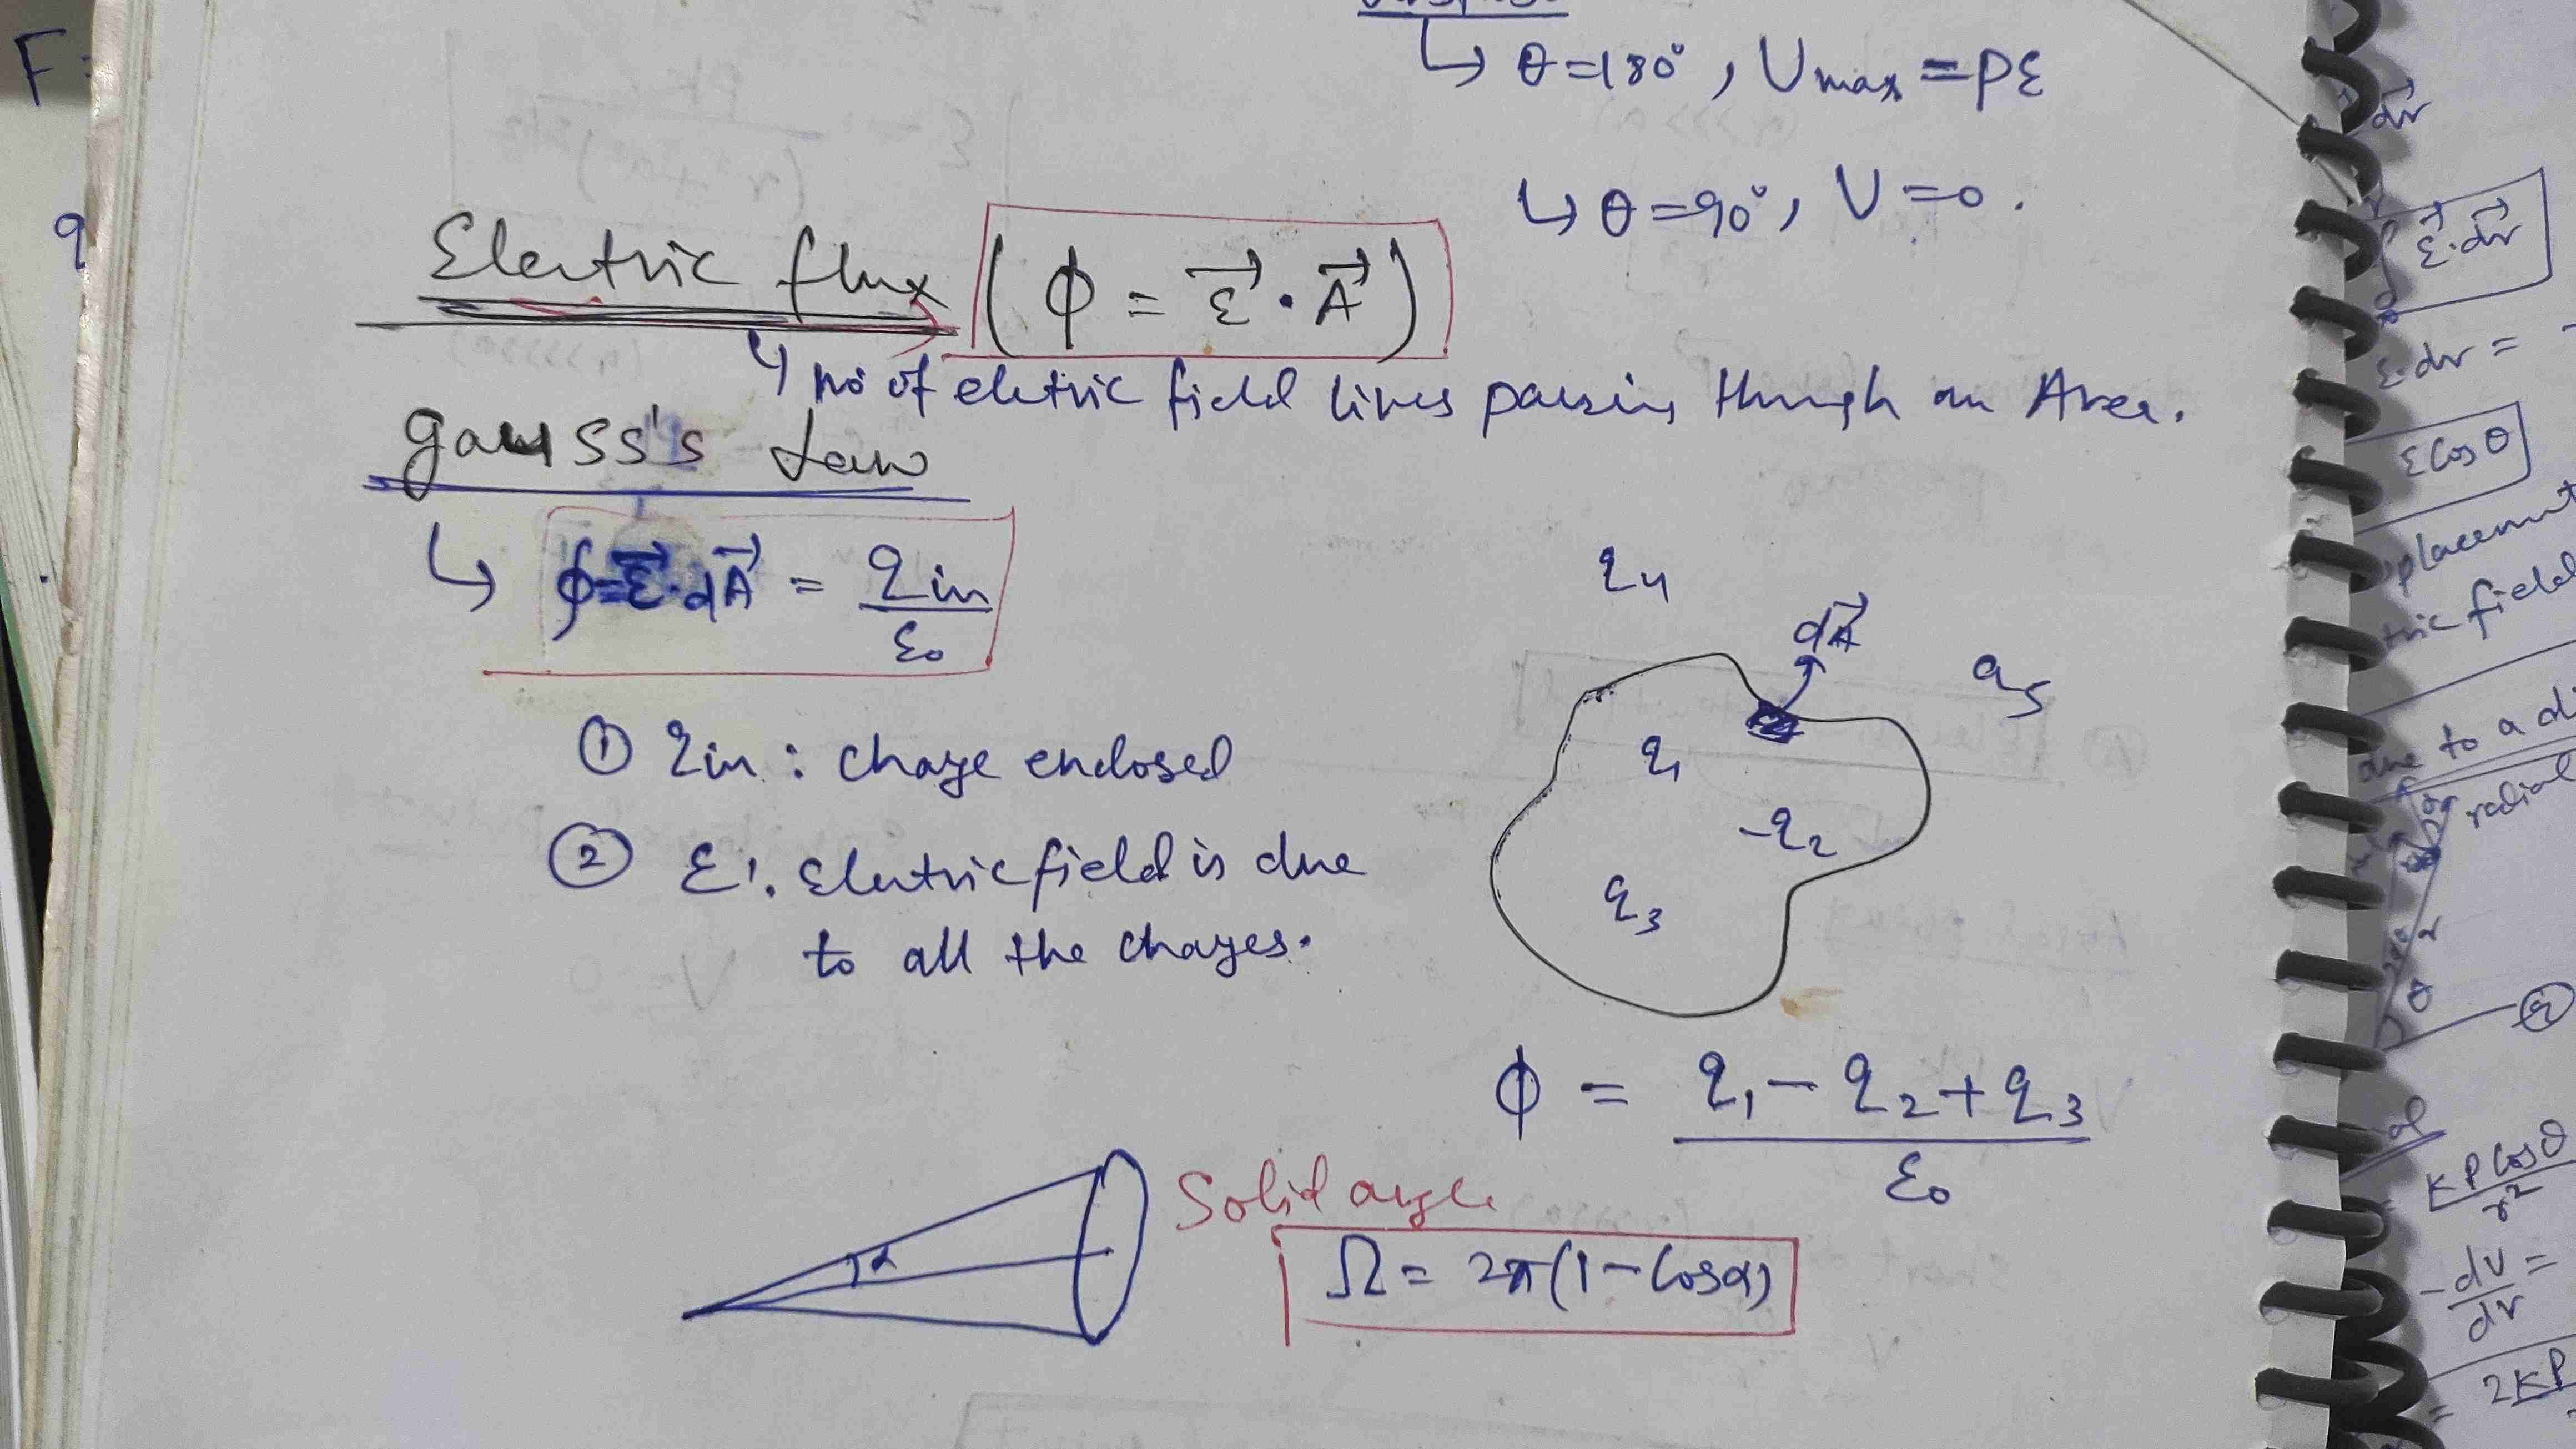 F
q
↳ θ=180°, Umax = pε
↳ θ=90°, U=0.
Electric flux (ϕ = ε⃗ · A⃗)
↳ no of eletric field lines passing through an Area.
gauss's Law
↳ ϕ=ε⃗·dA⃗ = qin/ε₀
① qin : charge enclosed
② ε: Electric field is due
to all the charges.
q₄
dA⃗
q₅
q₁
-q₂
q₃
ϕ = (q₁ - q₂ + q₃)/ε₀
α
Solid angle
Ω = 2π(1-Cosα)
dr⃗
ε⃗·dr⃗
ε·dr =
εCosθ
placement
tric field
due to a di
radial
r
θ
KPCosθ/r²
-dv/dr =
= 2KP